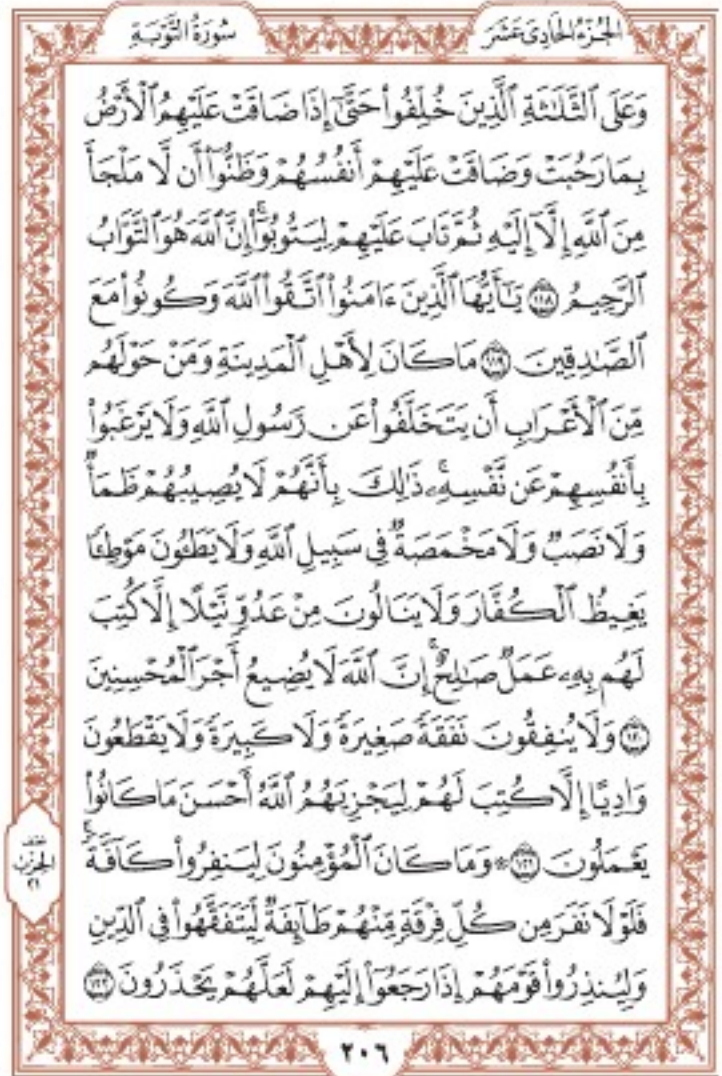 الجُزْءُ الحَادِي عَشَرَ
سُورَةُ التَّوْبَةِ
وَعَلَى ٱلثَّلَٰثَةِ ٱلَّذِينَ خُلِّفُواْ حَتَّىٰٓ إِذَا ضَاقَتْ عَلَيْهِمُ ٱلْأَرْضُ
بِمَا رَحُبَتْ وَضَاقَتْ عَلَيْهِمْ أَنفُسُهُمْ وَظَنُّوٓاْ أَن لَّا مَلْجَأَ
مِنَ ٱللَّهِ إِلَّآ إِلَيْهِ ثُمَّ تَابَ عَلَيْهِمْ لِيَتُوبُوٓاْۚ إِنَّ ٱللَّهَ هُوَ ٱلتَّوَّابُ
ٱلرَّحِيمُ ١١٨ يَٰٓأَيُّهَا ٱلَّذِينَ ءَامَنُواْ ٱتَّقُواْ ٱللَّهَ وَكُونُواْ مَعَ
ٱلصَّٰدِقِينَ ١١٩ مَا كَانَ لِأَهْلِ ٱلْمَدِينَةِ وَمَنْ حَوْلَهُم
مِّنَ ٱلْأَعْرَابِ أَن يَتَخَلَّفُواْ عَن رَّسُولِ ٱللَّهِ وَلَا يَرْغَبُواْ
بِأَنفُسِهِمْ عَن نَّفْسِهِۦۚ ذَٰلِكَ بِأَنَّهُمْ لَا يُصِيبُهُمْ ظَمَأٌ
وَلَا نَصَبٌ وَلَا مَخْمَصَةٌ فِي سَبِيلِ ٱللَّهِ وَلَا يَطَـُٔونَ مَوْطِئًا
يَغِيظُ ٱلْكُفَّارَ وَلَا يَنَالُونَ مِنْ عَدُوٍّ نَّيْلًا إِلَّا كُتِبَ
لَهُم بِهِۦ عَمَلٌ صَٰلِحٌۚ إِنَّ ٱللَّهَ لَا يُضِيعُ أَجْرَ ٱلْمُحْسِنِينَ
١٢٠ وَلَا يُنفِقُونَ نَفَقَةً صَغِيرَةً وَلَا كَبِيرَةً وَلَا يَقْطَعُونَ
وَادِيًا إِلَّا كُتِبَ لَهُمْ لِيَجْزِيَهُمُ ٱللَّهُ أَحْسَنَ مَا كَانُواْ
يَعْمَلُونَ ١٢١ ۞ وَمَا كَانَ ٱلْمُؤْمِنُونَ لِيَنفِرُواْ كَآفَّةًۚ
فَلَوْلَا نَفَرَ مِن كُلِّ فِرْقَةٍ مِّنْهُمْ طَآئِفَةٌ لِّيَتَفَقَّهُواْ فِي ٱلدِّينِ
وَلِيُنذِرُواْ قَوْمَهُمْ إِذَا رَجَعُوٓاْ إِلَيْهِمْ لَعَلَّهُمْ يَحْذَرُونَ ١٢٢
الحِزْب
٢١
٢٠٦